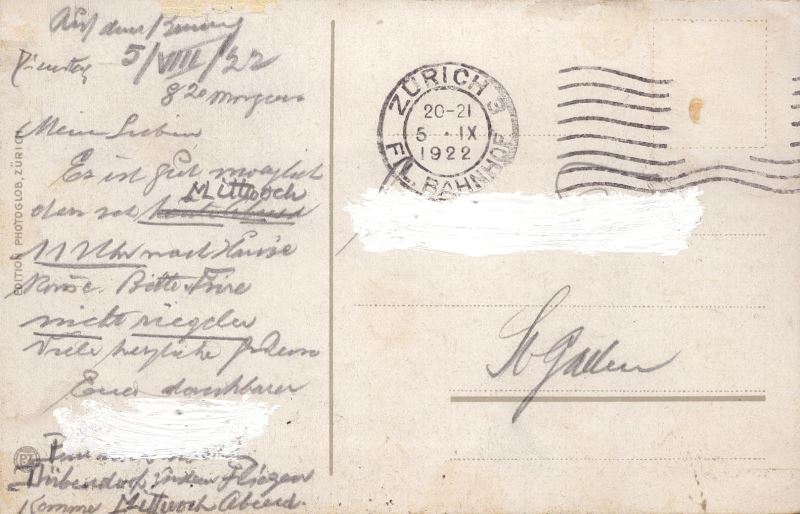 Auf dem
Dienstag 5/VIII/22
8 20 Morgens
Meine Lieben
Es ist gut moeglich
dass ich Mittwoch
11 Uhr nach Hause
komme. Bitte Türe
nicht riegeln
Viele herzliche
Euer dankbarer
Dübendorf Fliegen
Komme Mittwoch Abend.
EDITION PHOTOGLOB, ZÜRICH
PZ
ZÜRICH 3
20-21
5 · IX
1922
FIL. BAHNHOF
St Gallen